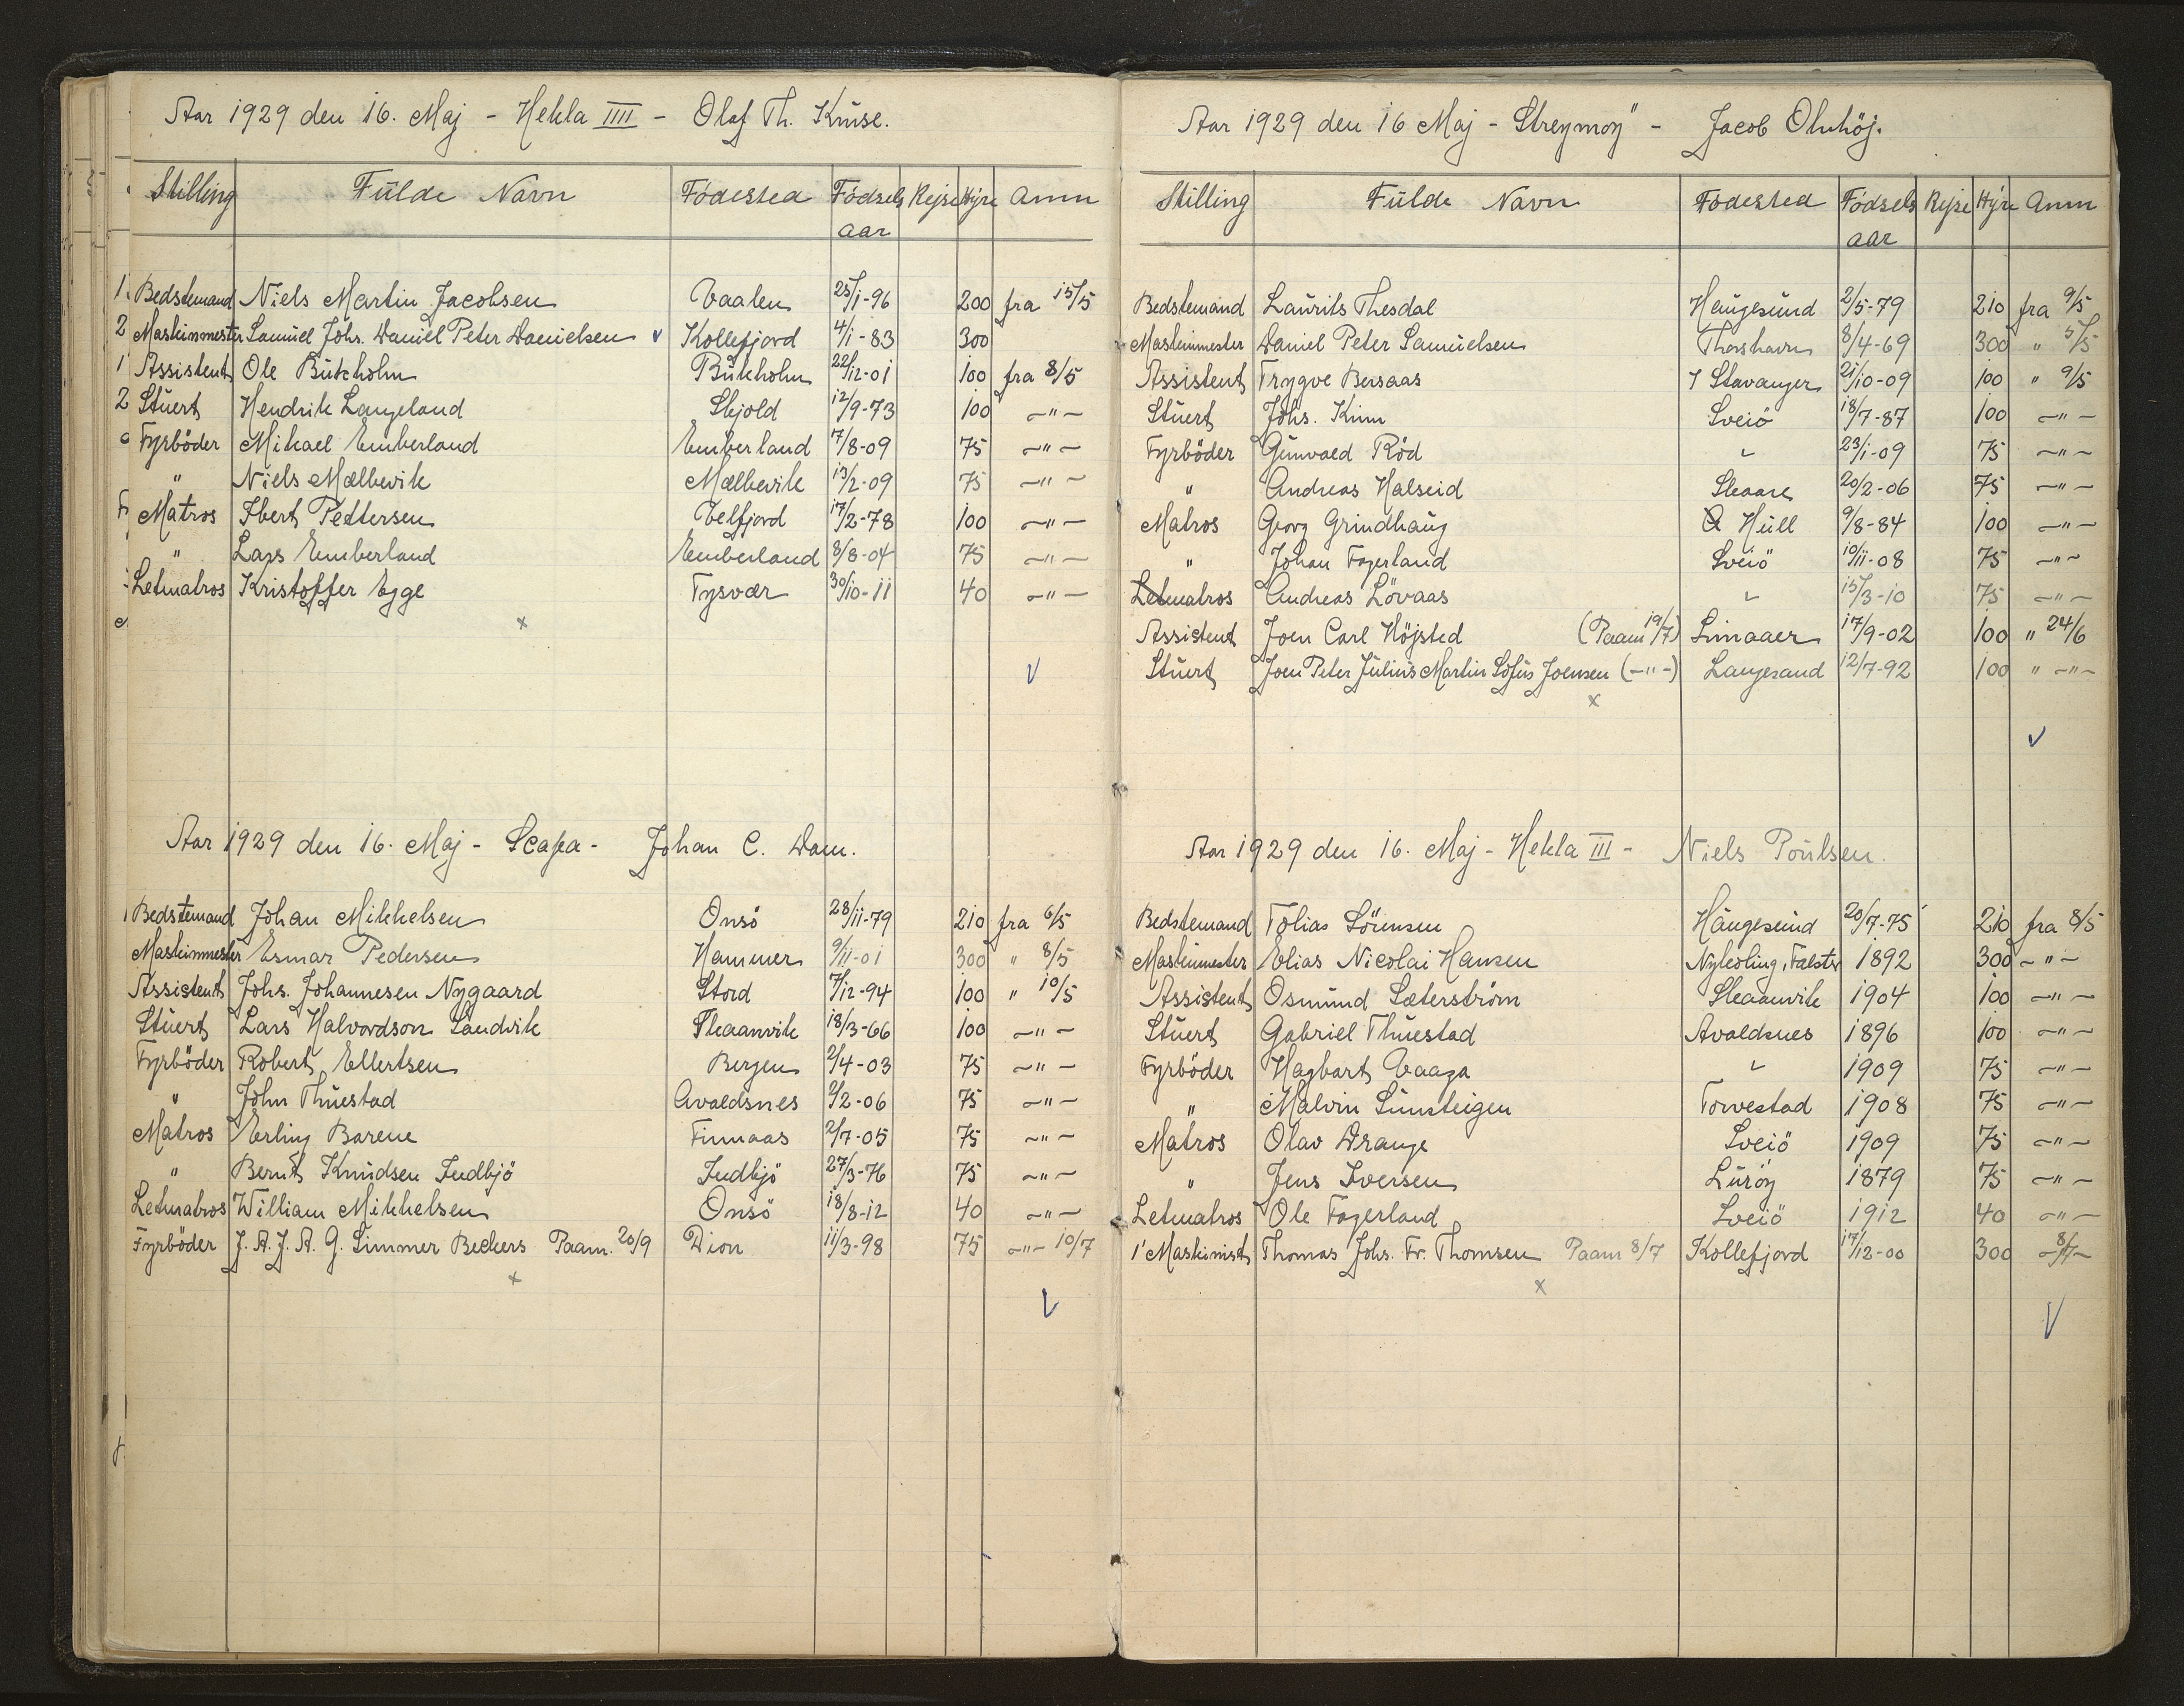 Aar 1929 den 16. Maj - Hekla IIII - Olaf Th. Kruse.
Stilling Fulde Navn Födested Födsels aar Rejse Hyre Anm
Bedstemand Niels Martin Jacobsen Vaalen 25/1-96 200 fra 15/5
Maskinmester Samuel Johs. Daniel Peter Danielsen v Kollefjord 4/1-83 300
Assistent Ole Bukholm Bukholm 22/12-01 100 fra 8/5
Stuert Hendrik Langeland Skjold 12/9-73 100 -"-
Fyrböder Mikael Emberland Emberland 7/8-09 75 -"-
" Niels Mælkevik Mælkevik 13/2-09 75 -"-
Matros Ebert Pettersen Velfjord 17/2-78 100 -"-
" Lars Emberland Emberland 8/8-04 75 -"-
Letmatros Kristoffer Egge Tysvær 30/10-11 40 -"-
x
V
Aar 1929 den 16. Maj - Scapa - Johan C. Dam.
Bedstemand Johan Mikkelsen Onsö 28/11-79 210 fra 6/5
Maskinmester Esmar Pedersen Hammer 9/11-01 300 " 8/5
Assistent Johs. Johannesen Nygaard Stord 7/12-94 100 " 10/5
Stuert Lars Halvordson Sandvik Skaanvik 18/3-66 100 -"-
Fyrböder Robert Ellertsen Bergen 2/4-03 75 -"-
" John Thuestad Avaldsnes 9/2-06 75 -"-
Matros Erling Barene Finnaas 2/7-05 75 -"-
" Bernt Knudsen Indbjö Indbjö 27/3-76 75 -"-
Letmatros William Mikkelsen Onsö 18/8-12 40 -"-
Fyrböder J. A. J. A. G. Simmer Beckers Paam. 20/9 Dion 11/3-98 75 -"- 10/7
x
V
Aar 1929 den 16 Maj - Streymoy" - Jacob Olnhöj.
Stilling Fulde Navn Födested Födsels aar Rejse Hyre Anm
Bedstemand Laurits Thesdal Haugesund 2/5-79 210 fra 9/5
Maskinmester Daniel Peter Samuelsen Thorshavn 8/4-69 300 " 5/5
Assistent Trygve Bersaas Stavanger 21/10-09 100 " 9/5
Stuert Johs. Kinn Sveiö 18/7-87 100 -"-
Fyrböder Gunvald Röd " 23/1-09 75 -"-
" Andreas Halseid Skaare 20/2-06 75 -"-
Matros Georg Grindhaug Hull 9/8-84 100 -"-
" Johan Fagerland Sveiö 10/11-08 75 -"-
Letmatros Andreas Lövaas " 15/3-10 75 -"-
Assistent Joen Carl Höjsted (Paam 19/7) Limaaer 17/9-02 100 " 24/6
Stuert Joen Peter Julius Martin Sofus Joensen (-"-) Langesand 12/7-92 100 " -"-
x
V
Aar 1929 den 16. Maj - Hekla III - Niels Poulsen.
Bedstemand Tobias Sörensen Haugesund 20/7-75 210 fra 8/5
Maskinmester Elias Nicolai Hansen Nyköbing, Falster 1892 300 -"-
Assistent Osmund Sæterström Skaanvik 1904 100 -"-
Stuert Gabriel Thuestad Avaldsnes 1896 100 -"-
Fyrböder Hagbart Vaaga " 1909 75 -"-
" Malvin Sunsteigen Torvestad 1908 75 -"-
Matros Olav Drange Sveiö 1909 75 -"-
" Jens Iversen Luröy 1879 75 -"-
Letmatros Ole Fagerland Sveiö 1912 40 -"-
1' Maskinist Thomas Johs. Fr. Thomsen Paam 8/7 Kollefjord 17/12-00 300 8/7
x
V